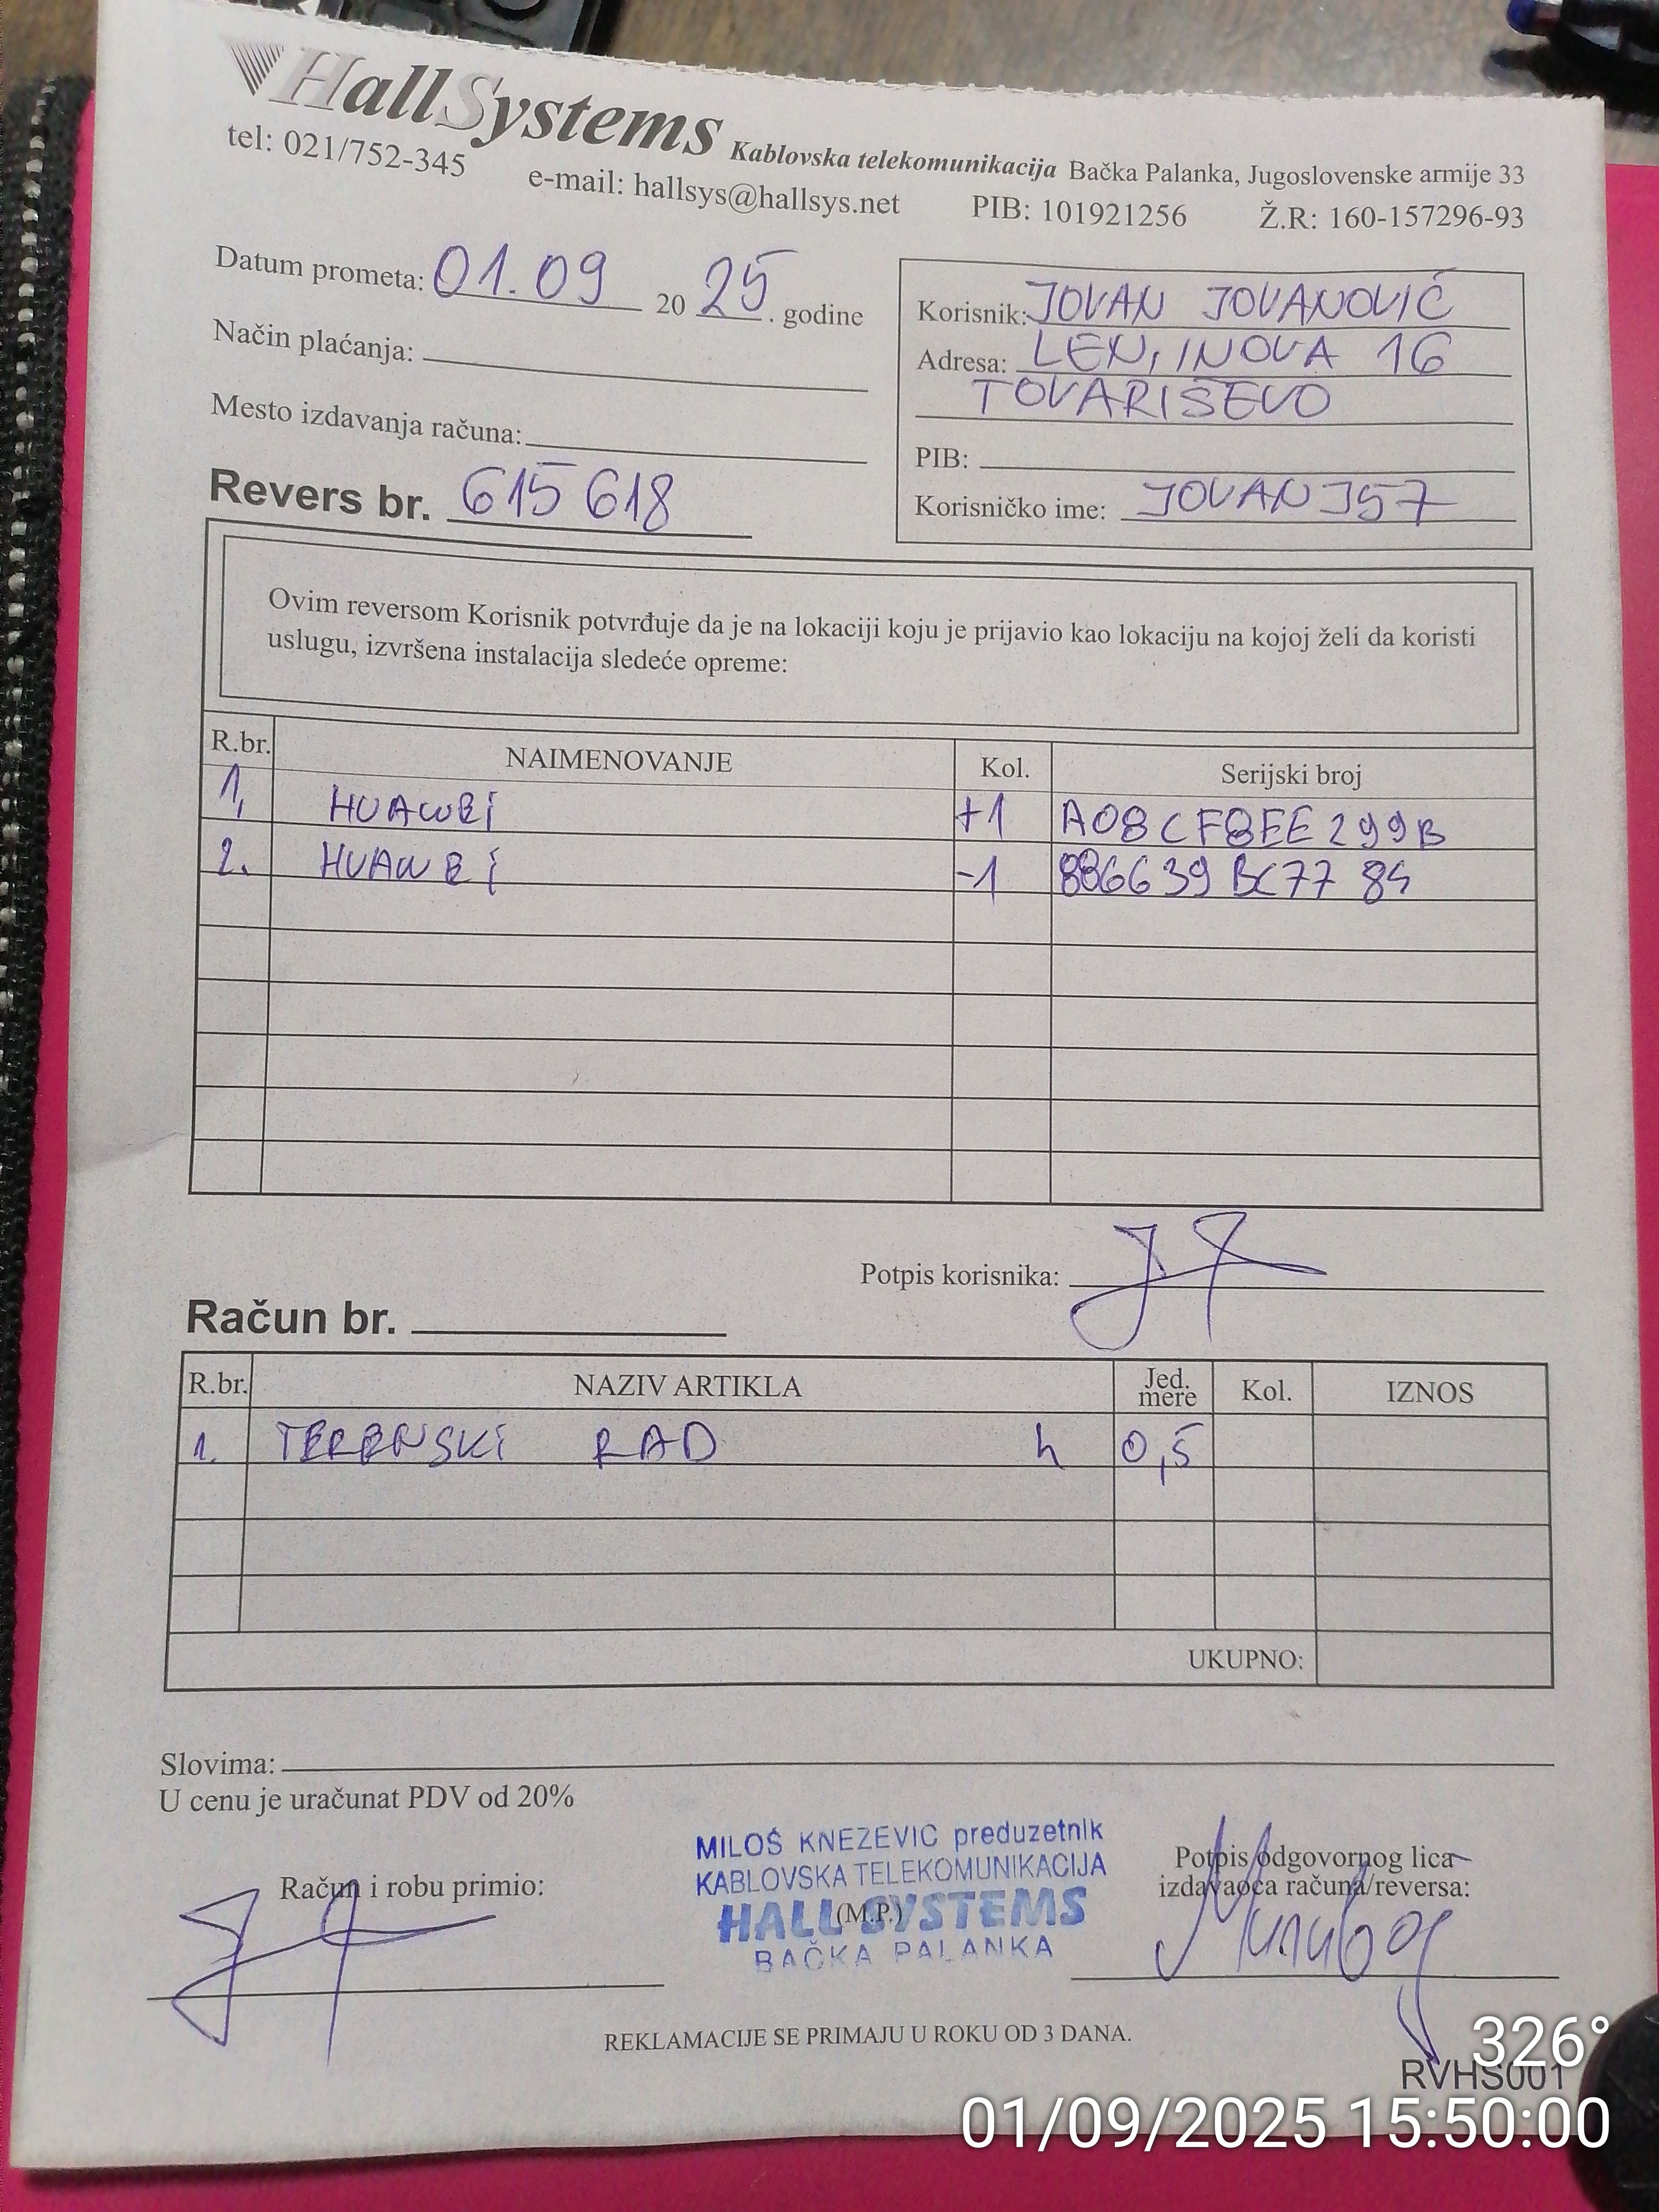 HallSystems Kablovska telekomunikacija Bačka Palanka, Jugoslovenske armije 33
tel: 021/752-345 e-mail: hallsys@hallsys.net PIB: 101921256 Ž.R: 160-157296-93
Datum prometa: 01.09 20 25. godine
Način plaćanja:
Mesto izdavanja računa:
Revers br. 615618
Korisnik: JOVAN JOVANOVIĆ
Adresa: LENJINOVA 16
TOVARIŠEVO
PIB:
Korisničko ime: JOVANJ57
Ovim reversom Korisnik potvrđuje da je na lokaciji koju je prijavio kao lokaciju na kojoj želi da koristi
uslugu, izvršena instalacija sledeće opreme:
R.br. NAIMENOVANJE Kol. Serijski broj
1. HUAWEI +1 A08CF8EE299B
2. HUAWEI -1 886639BC7784
Potpis korisnika:
Račun br.
R.br. NAZIV ARTIKLA Jed. mere Kol. IZNOS
1. TERENSKI RAD h 0,5
UKUPNO:
Slovima:
U cenu je uračunat PDV od 20%
Račun i robu primio:
MILOŠ KNEZEVIC preduzetnik
KABLOVSKA TELEKOMUNIKACIJA
HALL SYSTEMS
(M.P.)
BAČKA PALANKA
Potpis odgovornog lica
izdavaoca računa/reversa:
REKLAMACIJE SE PRIMAJU U ROKU OD 3 DANA.
326°
RVHS001
01/09/2025 15:50:00